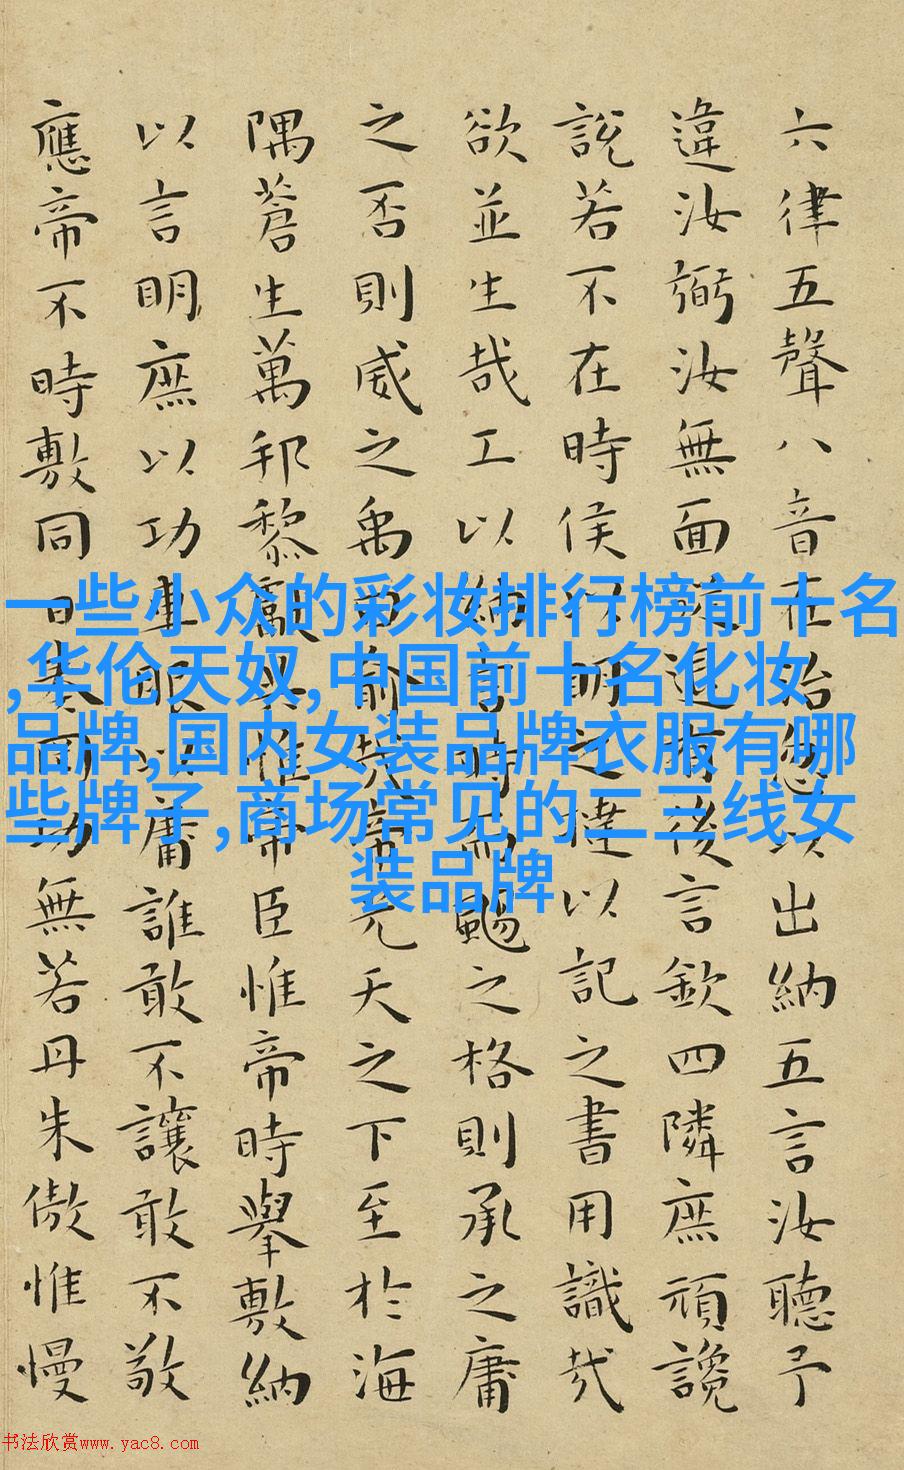 六律五聲八音在治忽以出納五言汝聽予
違汝弼汝無面從退有後言欽四隣庶頑讒
說若不在時侯以明之撻以記之書用識哉
欲並生哉工以納言時而颺之格則承之庸
之否則威之禹曰俞哉帝光天之下至於海
隅蒼生萬邦黎獻共惟帝臣惟帝時舉敷納
以言明庶以功車服以庸誰敢不讓敢不敬
應帝不時敷同日奏罔功無若丹朱傲惟慢
一些小众的彩妆排行榜前十名
,华伦天奴,中国前十名化妆
品牌,国内女装品牌衣服有哪
些牌子,商场常见的二三线女
装品牌
书法欣赏www.yac8.com